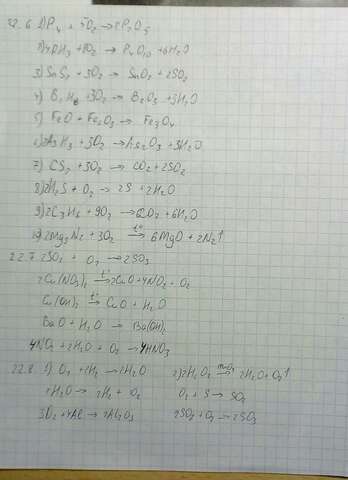 22.6 1) P₄ + 5O₂ → 2P₂O₅
2) 4PH₃ + 8O₂ → P₄O₁₀ + 6H₂O
3) SnS₂ + 3O₂ → SnO₂ + 2SO₂
4) B₂H₆ + 3O₂ → B₂O₃ + 3H₂O
5) FeO + Fe₂O₃ → Fe₃O₄
6) 2AsH₃ + 3O₂ → As₂O₃ + 3H₂O
7) CS₂ + 3O₂ → CO₂ + 2SO₂
8) 2H₂S + O₂ → 2S + 2H₂O
9) 2C₃H₆ + 9O₂ → 6CO₂ + 6H₂O
10) 2Mg₃N₂ + 3O₂ →(t°) 6MgO + 2N₂↑
22.7 2SO₂ + O₂ → 2SO₃
2Cu(NO₃)₂ →(t°) 2CuO + 4NO₂ + O₂
Cu(OH)₂ →(t°) CuO + H₂O
BaO + H₂O → Ba(OH)₂
4NO₂ + 2H₂O + O₂ → 4HNO₃
22.8 1) O₂ + 2H₂ → 2H₂O 2) 2H₂O₂ →(MnO₂) 2H₂O + O₂↑
2H₂O → 2H₂ + O₂ O₂ + S → SO₂
3O₂ + 4Al → 2Al₂O₃ 2SO₂ + O₂ → 2SO₃